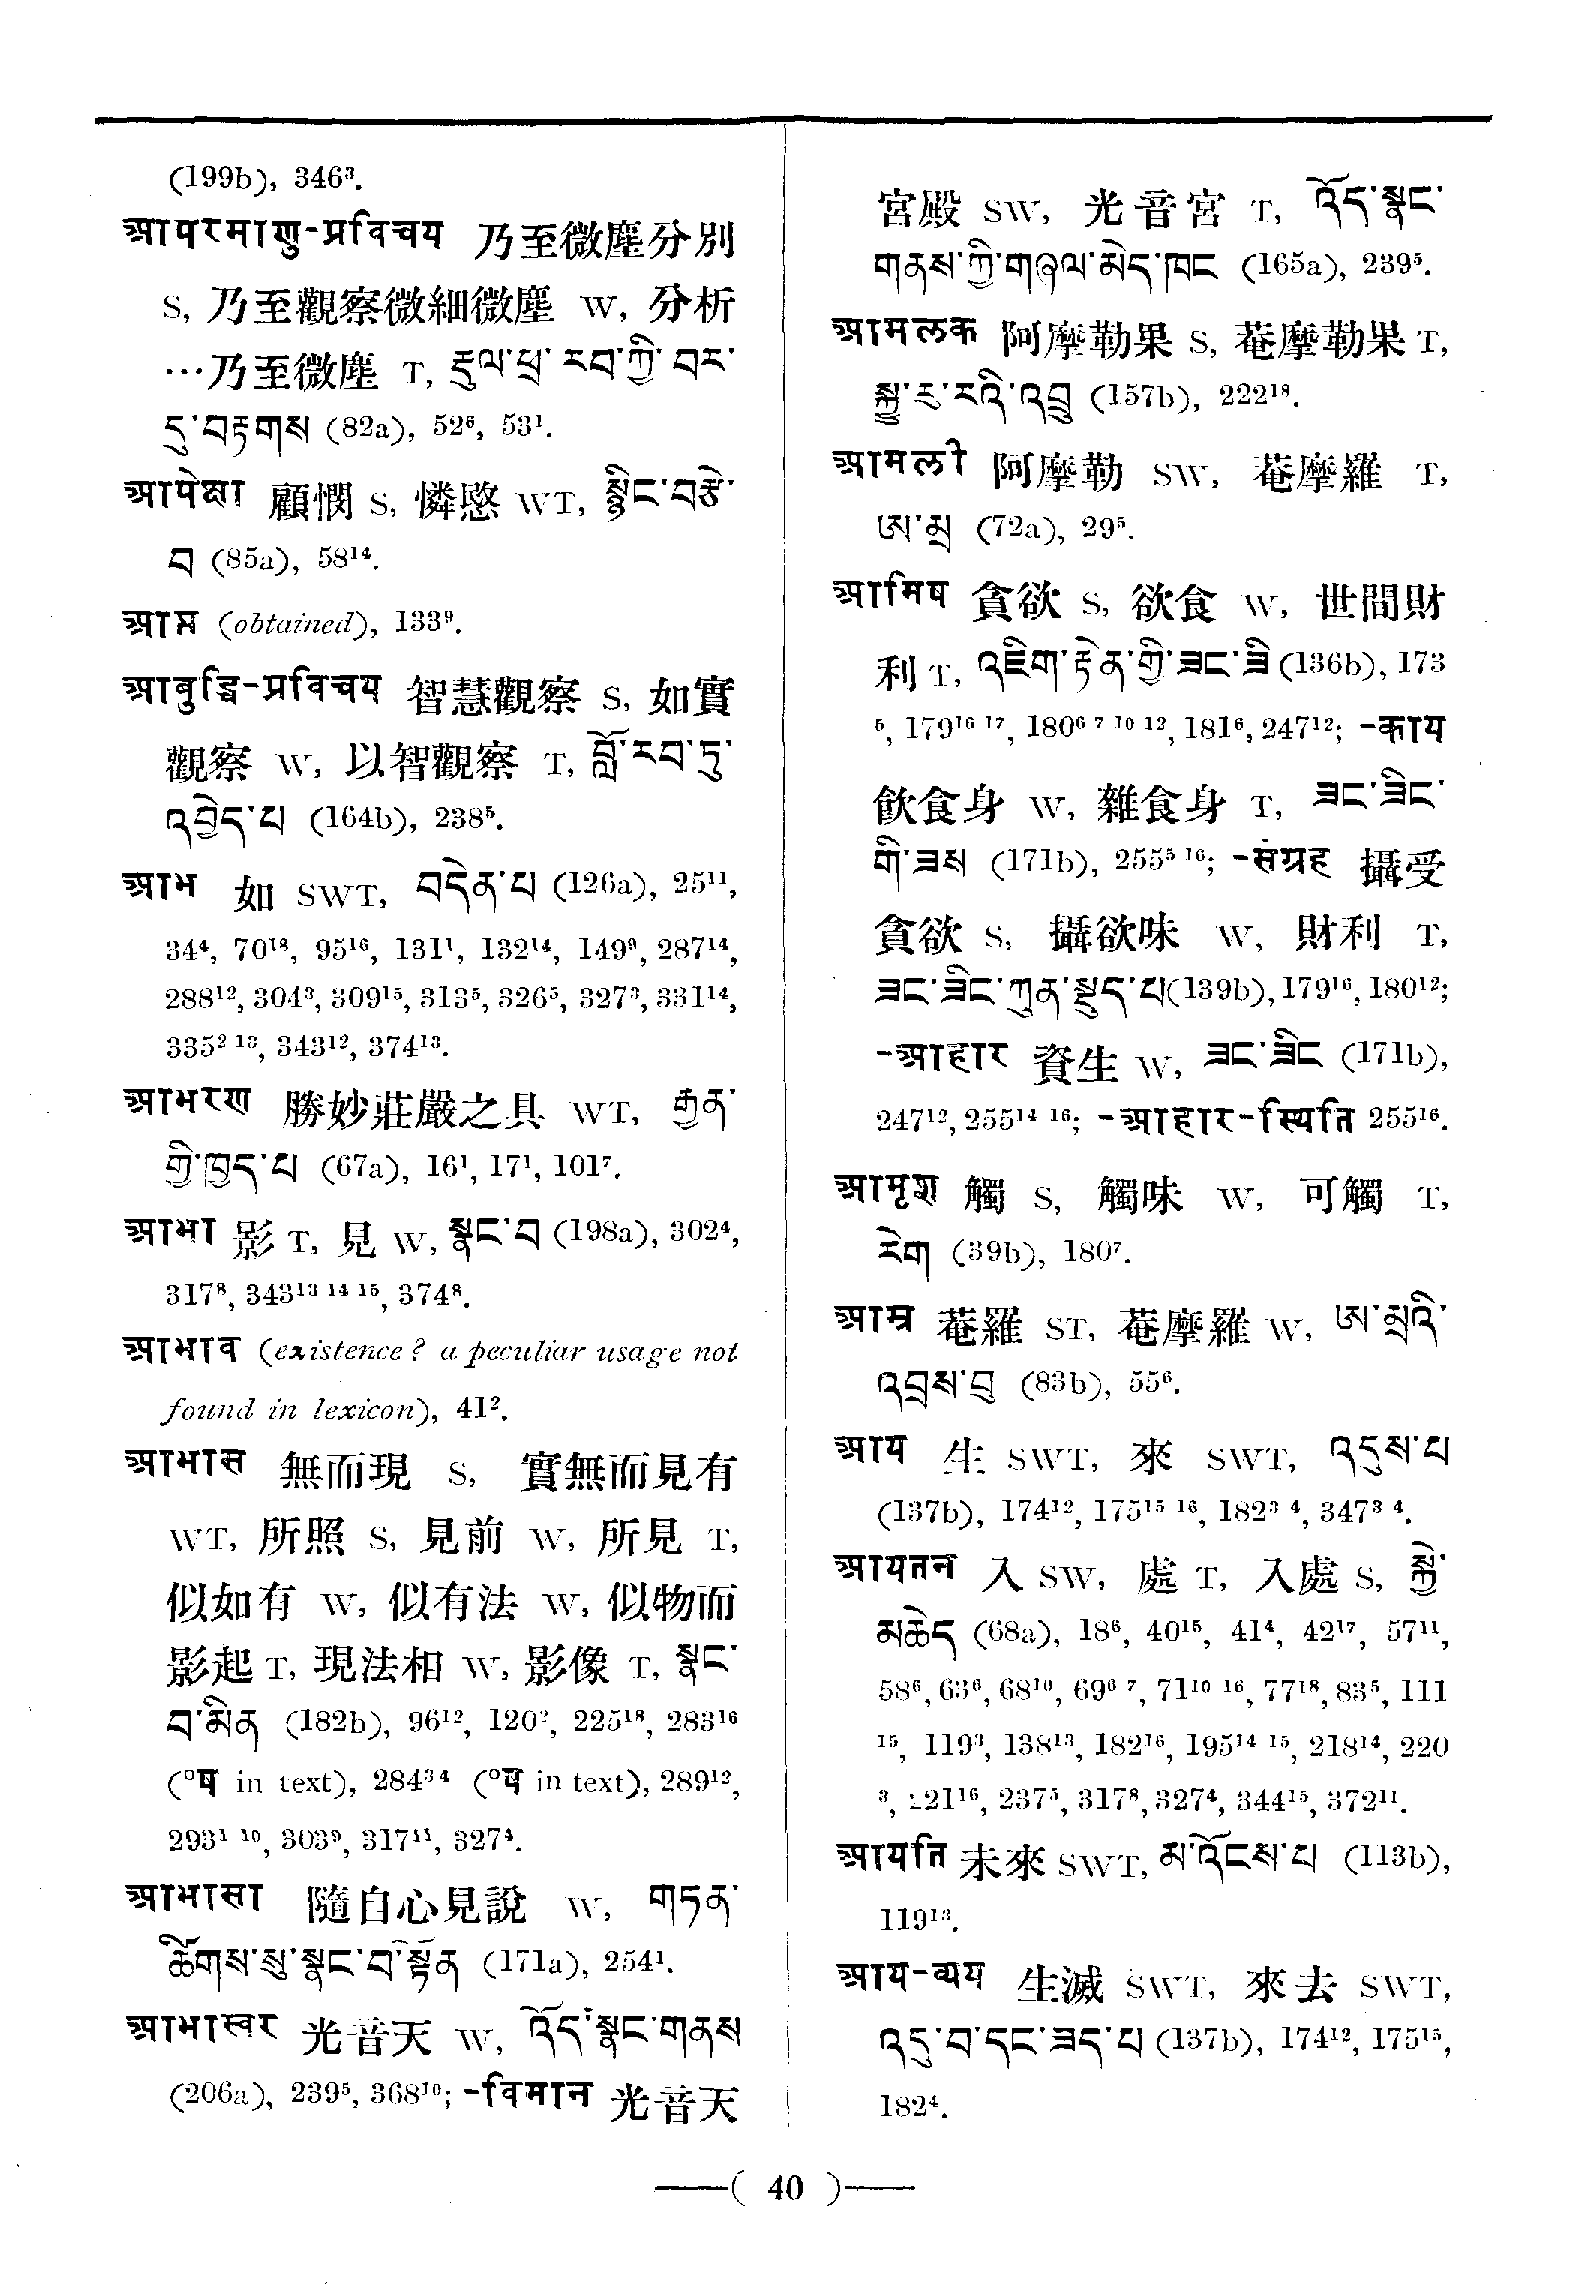 (199b), 346³.
आपरमाणु-प्रविचय 乃至微塵分別
S, 乃至觀察微細微塵 W, 分析
…乃至微塵 T, རྡུལ་ཕྲ་རབ་ཀྱི་བར་
དུ་བརྟགས (82a), 52⁶, 53¹.
आपेक्षा 顧憫 S, 憐愍 WT, སྙིང་བརྩེ་
བ (85a), 58¹⁴.
आप्त (obtained), 133⁹.
आबुद्धि-प्रविचय 智慧觀察 S, 如實
觀察 W, 以智觀察 T, བློ་རབ་ཏུ་
འབྱེད་པ (164b), 238⁵.
आभ 如 SWT, བདེན་པ (126a), 25¹¹,
34⁴, 70¹⁸, 95¹⁶, 131¹, 132¹⁴, 149⁹, 287¹⁴,
288¹², 304³, 309¹⁵, 313⁵, 326⁵, 327³, 331¹⁴,
335² ¹³, 343¹², 374¹³.
आभरण 勝妙莊嚴之具 WT, རྒྱན་
གྱི་ཁྱད་པ (67a), 16¹, 17¹, 101⁷.
आभा 影 T, 見 W, སྣང་བ (198a), 302⁴,
317⁸, 343¹³ ¹⁴ ¹⁵, 374⁸.
आभाव (existence? a peculiar usage not
found in lexicon), 41².
आभास 無而現 S, 實無而見有
WT, 所照 S, 見前 W, 所見 T,
似如有 W, 似有法 W, 似物而
影起 T, 現法相 W, 影像 T, སྣང་
བ་མིན (182b), 96¹², 120², 225¹⁸, 283¹⁶
(°ष in text), 284³⁴ (°ष in text), 289¹²,
293¹ ¹⁰, 303⁹, 317¹¹, 327⁴.
आभासा 隨自心見說 W, གཏན་
ཚིགས་སུ་སྣང་བ་སྟོན (171a), 254¹.
आभास्वर 光音天 W, འོད་སྣང་གནས
(206a), 239⁵, 368¹⁰; -विमान 光音天
宮殿 SW, 光音宮 T, འོད་སྣང་
གནས་ཀྱི་གཞལ་མེད་ཁང (165a), 239⁵.
आमलक 阿摩勒果 S, 菴摩勒果 T,
སྐྱུ་རུ་རའི་འབྲུ (157b), 222¹⁸.
आमली 阿摩勒 SW, 菴摩羅 T,
ཨ་མྲ (72a), 29⁵.
आमिष 貪欲 S, 欲食 W, 世間財
利 T, འཇིག་རྟེན་གྱི་ཟང་ཟི (136b), 173
⁵, 179¹⁶ ¹⁷, 180⁶ ⁷ ¹⁰ ¹², 181⁶, 247¹²; -काय
飮食身 W, 雜食身 T, ཟང་ཟིང་
གི་ཟས (171b), 255⁵ ¹⁶; -संग्रह 攝受
貪欲 S, 攝欲味 W, 財利 T,
ཟང་ཟིང་ཀུན་སྡུད་པ (139b), 179¹⁶, 180¹²;
-आहार 資生 W, ཟང་ཟིང (171b),
247¹², 255¹⁴ ¹⁶; -आहार-स्थिति 255¹⁶.
आमृश 觸 S, 觸味 W, 可觸 T,
རེག (39b), 180⁷.
आम्र 菴羅 ST, 菴摩羅 W, ཨ་མྲའི་
འབྲས་བུ (83b), 55⁶.
आय 生 SWT, 來 SWT, འདུས་པ
(137b), 174¹², 175¹⁵ ¹⁶, 182³ ⁴, 347³ ⁴.
आयतन 入 SW, 處 T, 入處 S, སྐྱེ་
མཆེད (68a), 18⁶, 40¹⁵, 41⁴, 42¹⁷, 57¹¹,
58⁶, 63⁶, 68¹⁰, 69⁶ ⁷, 71¹⁰ ¹⁶, 77¹⁸, 83⁵, 111
¹⁵, 119³, 138¹³, 182¹⁶, 195¹⁴ ¹⁵, 218¹⁴, 220
³, 221¹⁶, 237⁵, 317⁸, 327⁴, 344¹⁵, 372¹¹.
आयति 未來 SWT, མ་འོངས་པ (113b),
119¹³.
आय-व्यय 生滅 SWT, 來去 SWT,
འདུ་བ་དང་ཟད་པ (137b), 174¹², 175¹⁵,
182⁴.
—( 40 )—